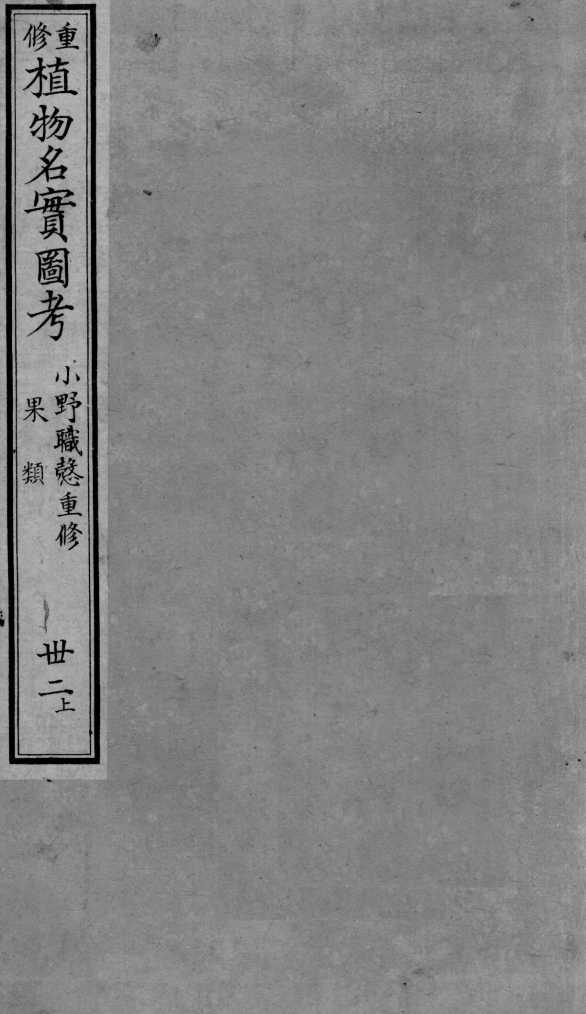 重修
植物名實圖考
小野職愨重修
果類
丗二上